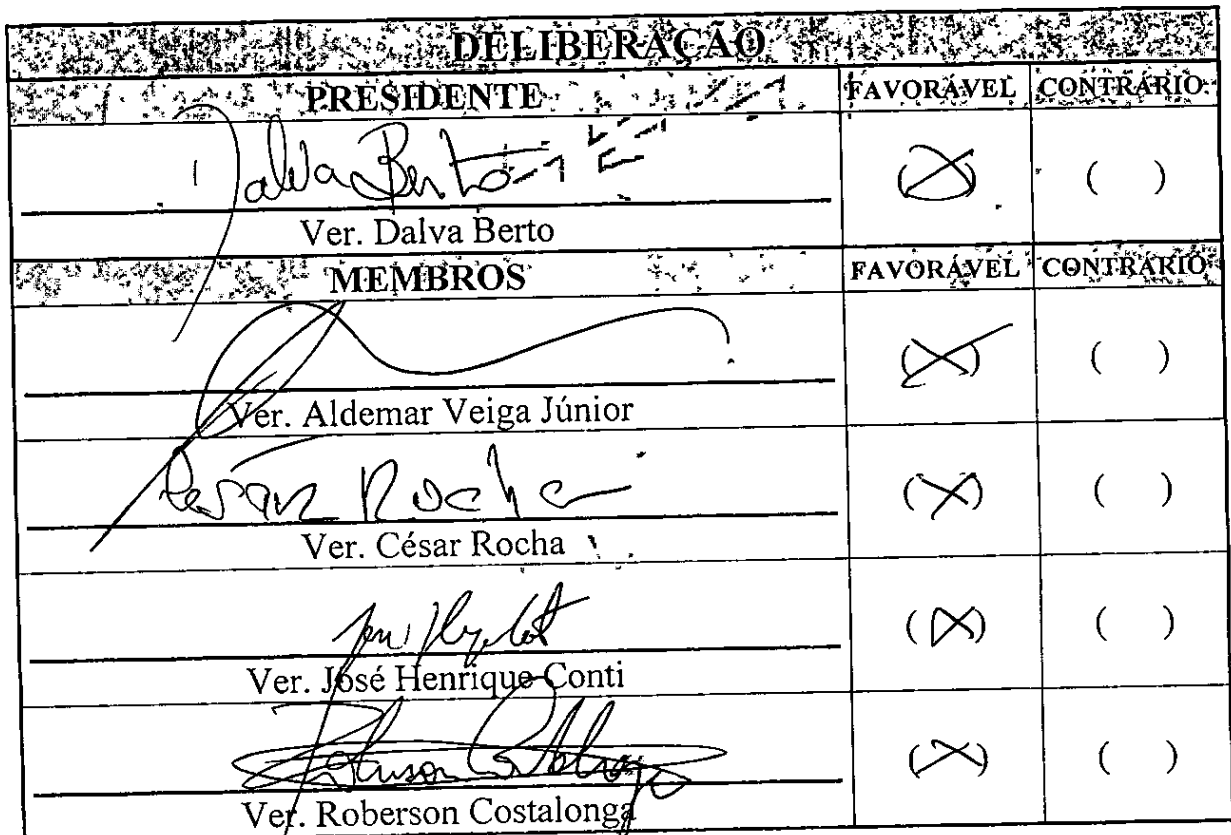 DELIBERAÇÃO
PRESIDENTE FAVORÁVEL CONTRÁRIO
Dalva Berto (X) ( )
Ver. Dalva Berto
MEMBROS FAVORÁVEL CONTRÁRIO
(X) ( )
Ver. Aldemar Veiga Júnior
César Rocha (X) ( )
Ver. César Rocha
(X) ( )
Ver. José Henrique Conti
(X) ( )
Ver. Roberson Costalonga